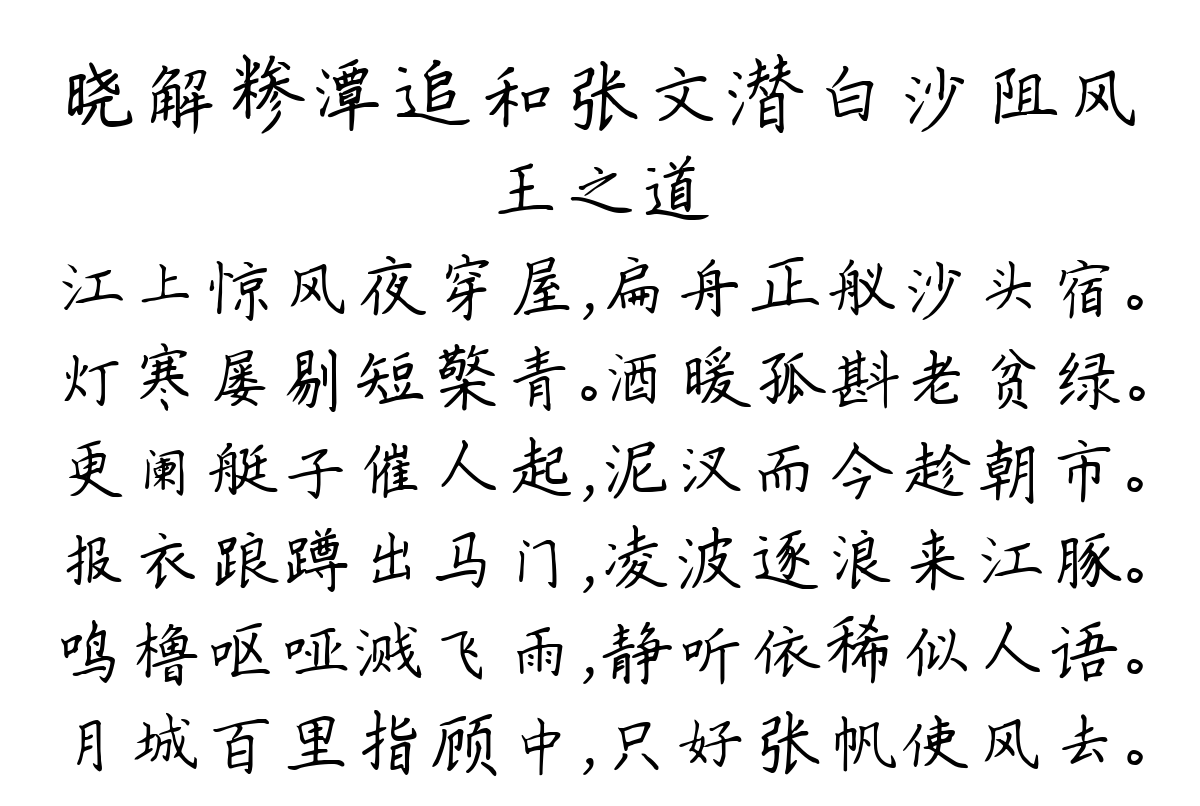 晓解糁潭追和张文潜白沙阻风
王之道
江上惊风夜穿屋,扁舟正舣沙头宿。
灯寒屡剔短檠青。酒暖孤斟老贫绿。
更阑艇子催人起,泥汊而今趁朝市。
报衣踉蹲出马门,凌波逐浪来江豚。
鸣橹呕哑溅飞雨,静听依稀似人语。
月城百里指顾中,只好张帆使风去。